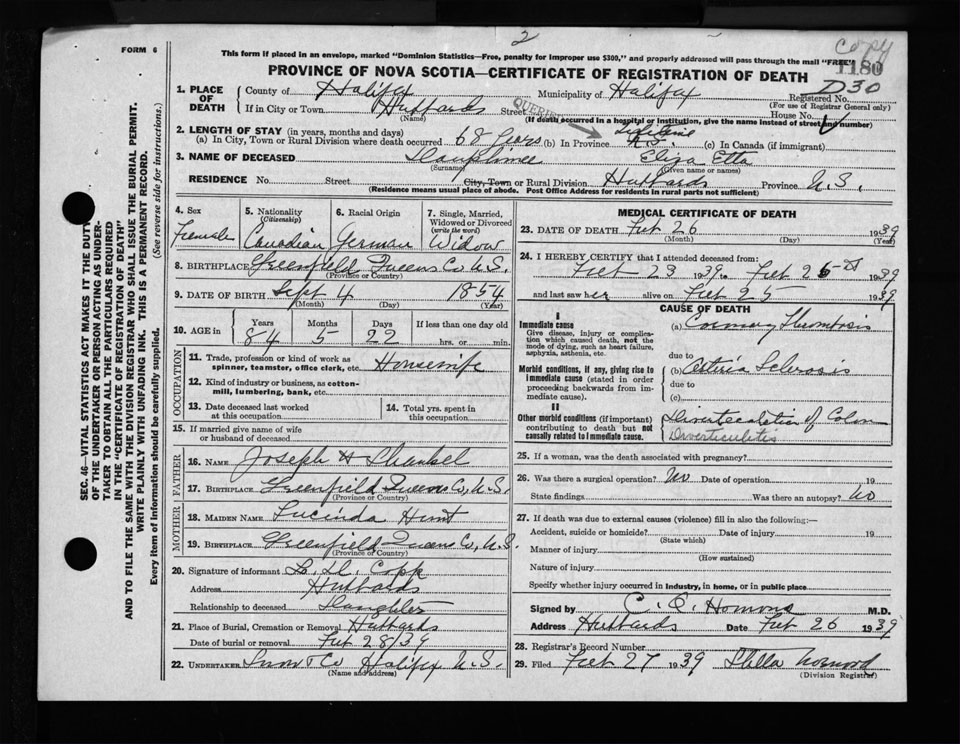 2
copy
FORM 6
This form if placed in an envelope, marked "Dominion Statistics—Free, penalty for improper use $300," and properly addressed will pass through the mail "FREE"
1180
PROVINCE OF NOVA SCOTIA—CERTIFICATE OF REGISTRATION OF DEATH
D30
1. PLACE OF DEATH
County of Halifax Municipality of Halifax Registered No.
(For use of Registrar General only)
If in City or Town Hubbards Street House No.
(Name) (If death occurred in a hospital or institution, give the name instead of street and number)
QUERIED
2. LENGTH OF STAY (in years, months and days) Lifetime
(a) In City, Town or Rural Division where death occurred 68 Years (b) In Province N.S. (c) In Canada (if immigrant)
3. NAME OF DECEASED Dauphinee Eliza Etta
(Surname) (Given name or names)
RESIDENCE No. Street City, Town or Rural Division Hubbards Province N.S.
(Residence means usual place of abode. Post Office Address for residents in rural parts not sufficient)
SEC. 46—VITAL STATISTICS ACT MAKES IT THE DUTY
OF THE UNDERTAKER OR PERSON ACTING AS UNDER-
TAKER TO OBTAIN ALL THE PARTICULARS REQUIRED
IN THE "CERTIFICATE OF REGISTRATION OF DEATH"
AND TO FILE THE SAME WITH THE DIVISION REGISTRAR WHO SHALL ISSUE THE BURIAL PERMIT.
WRITE PLAINLY WITH UNFADING INK. THIS IS A PERMANENT RECORD.
Every item of Information should be carefully supplied. (See reverse side for instructions.)
4. Sex 5. Nationality 6. Racial Origin 7. Single, Married,
(Citizenship) Widowed or Divorced
(write the word)
Female Canadian German Widow
8. BIRTHPLACE Greenfield Queens Co N.S.
(Province or Country)
9. DATE OF BIRTH Sept 4 1854
(Month) (Day) (Year)
10. AGE in Years Months Days If less than one day old
84 5 22 hrs. or min.
OCCUPATION
11. Trade, profession or kind of work as
spinner, teamster, office clerk, etc. Housewife
12. Kind of industry or business, as cotton-
mill, lumbering, bank, etc.
13. Date deceased last worked
at this occupation
14. Total yrs. spent in
this occupation
15. If married give name of wife
or husband of deceased
FATHER
16. NAME Joseph H
17. BIRTHPLACE Greenfield Queens Co, N.S.
(Province or Country)
MOTHER
18. MAIDEN NAME Lucinda Hunt
19. BIRTHPLACE Greenfield Queens Co, N.S.
(Province or Country)
20. Signature of informant
Address Hubbards
Relationship to deceased Daughter
21. Place of Burial, Cremation or Removal Hubbards
Date of burial or removal Feb 28/39
22. UNDERTAKER Snow & Co Halifax N.S.
(Name and address)
MEDICAL CERTIFICATE OF DEATH
23. DATE OF DEATH Feb 26 1939
(Month) (Day) (Year)
24. I HEREBY CERTIFY that I attended deceased from:
Feb 23 1939 to Feb 25 1939
and last saw her alive on Feb 25 1939
CAUSE OF DEATH
I
Immediate cause
Give disease, injury or complica-
tion which caused death, not the
mode of dying, such as heart failure,
asphyxia, asthenia, etc.
(a) Coronary Thrombosis
due to
Morbid conditions, if any, giving rise to
immediate cause (stated in order
proceeding backwards from im-
mediate cause).
(b) Arterio Sclerosis
due to
(c)
II
Other morbid conditions (if important)
contributing to death but not
causally related to immediate cause.
of Colon
Diverticulitis
25. If a woman, was the death associated with pregnancy?
26. Was there a surgical operation? No Date of operation 19
State findings Was there an autopsy? No
27. If death was due to external causes (violence) fill in also the following:—
Accident, suicide or homicide? Date of injury 19
(State which)
Manner of injury
(How sustained)
Nature of injury
Specify whether injury occurred in industry, in home, or in public place
Signed by M.D.
Address Hubbards Date Feb 26 1939
28. Registrar's Record Number
29. Filed Feb 27 1939 Stella Norwood
(Division Registrar)